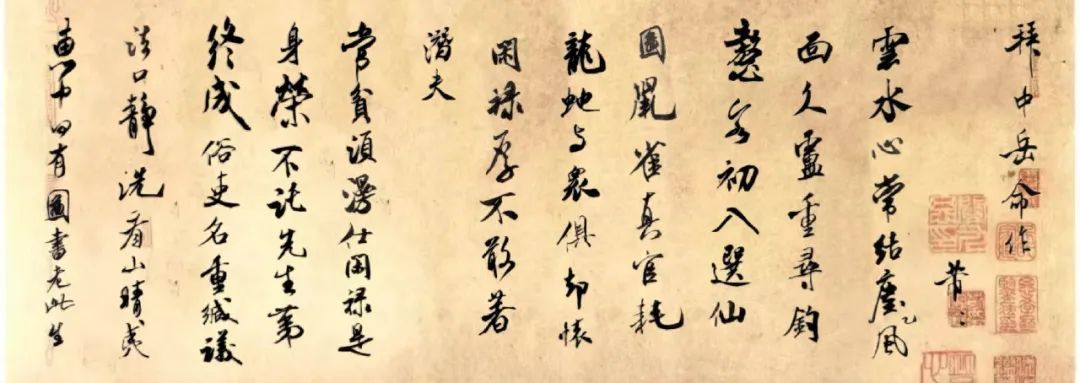 拜中岳命作
芾〻
雲水心常結塵風
面久盧重尋釣
鼇客初入選仙
圖鼠雀真官耗
龍蛇与衆俱却懷
閑祿厚不敢著
潛夫
常貧須漫仕閑祿是
身榮不託先生第
終成俗吏名重緘議
法口靜洗看山晴夷
惠中何有圖書老此生